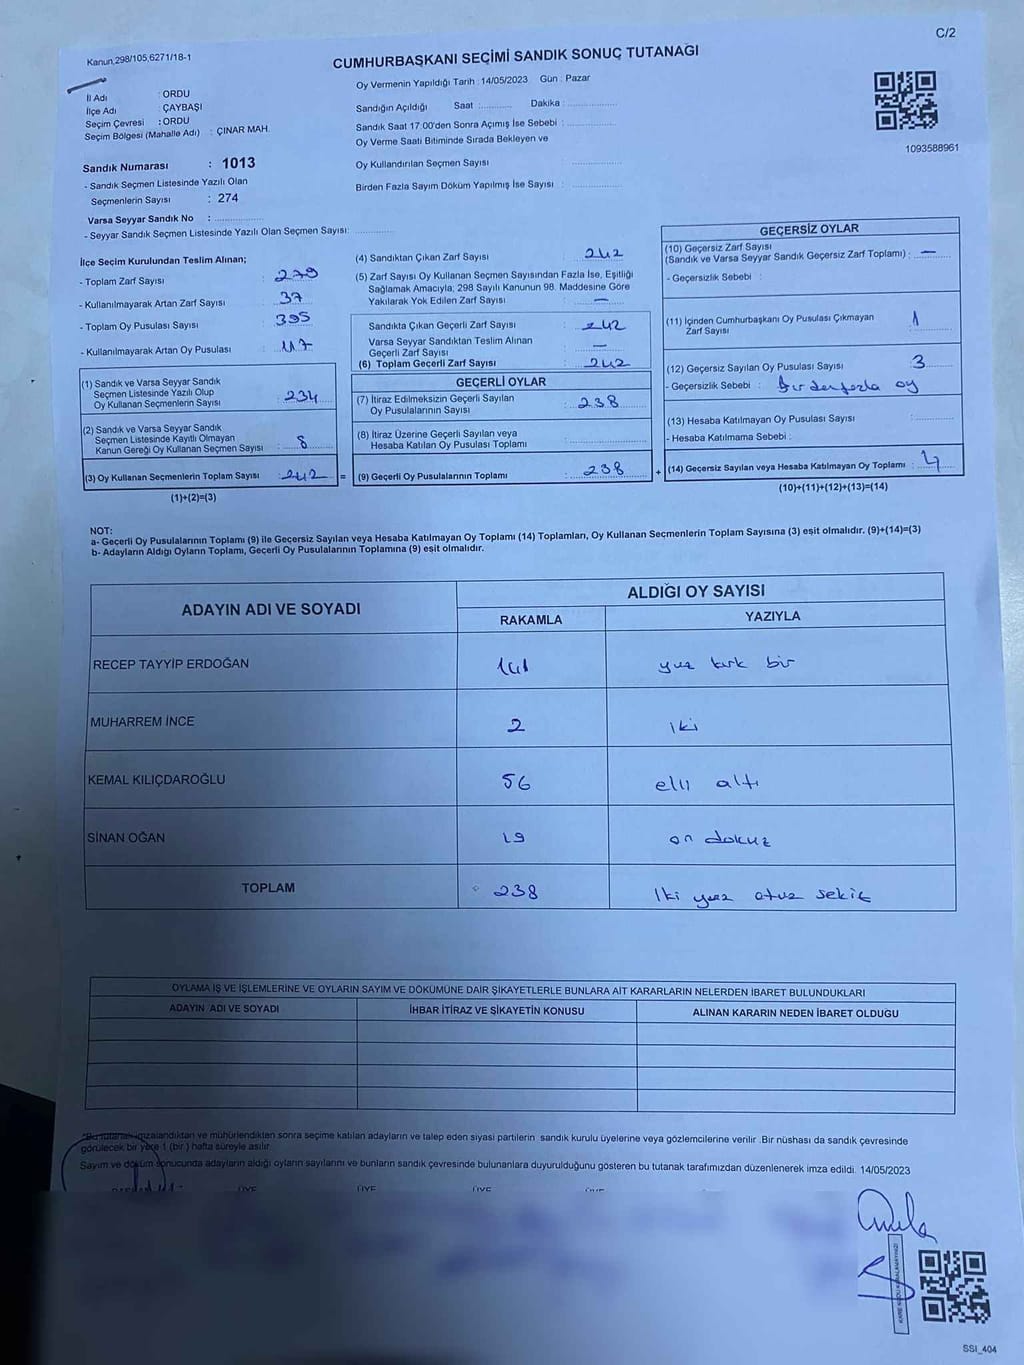 C/2
Kanun,298/105,6271/18-1
CUMHURBAŞKANI SEÇİMİ SANDIK SONUÇ TUTANAĞI
İl Adı : ORDU
İlçe Adı : ÇAYBAŞI
Seçim Çevresi : ORDU
Seçim Bölgesi (Mahalle Adı) : ÇINAR MAH.
Oy Vermenin Yapıldığı Tarih : 14/05/2023 Gün : Pazar
Sandığın Açıldığı Saat :............ Dakika :................
Sandık Saat 17:00'den Sonra Açımış İse Sebebi :................
Oy Verme Saati Bitiminde Sırada Bekleyen ve
Oy Kullandırılan Seçmen Sayısı :................
Birden Fazla Sayım Döküm Yapılmış İse Sayısı :................
1093588961
Sandık Numarası : 1013
- Sandık Seçmen Listesinde Yazılı Olan
Seçmenlerin Sayısı : 274
Varsa Seyyar Sandık No :................
- Seyyar Sandık Seçmen Listesinde Yazılı Olan Seçmen Sayısı:............
İlçe Seçim Kurulundan Teslim Alınan;
- Toplam Zarf Sayısı : 279
- Kullanılmayarak Artan Zarf Sayısı : 37
- Toplam Oy Pusulası Sayısı : 395
- Kullanılmayarak Artan Oy Pusulası : 117
(1) Sandık ve Varsa Seyyar Sandık
Seçmen Listesinde Yazılı Olup
Oy Kullanan Seçmenlerin Sayısı : 234
(2) Sandık ve Varsa Seyyar Sandık
Seçmen Listesinde Kayıtlı Olmayan
Kanun Gereği Oy Kullanan Seçmen Sayısı : 8
(3) Oy Kullanan Seçmenlerin Toplam Sayısı : 242 =
(1)+(2)=(3)
(4) Sandıktan Çıkan Zarf Sayısı : 242
(5) Zarf Sayısı Oy Kullanan Seçmen Sayısından Fazla İse, Eşitliği
Sağlamak Amacıyla, 298 Sayılı Kanunun 98. Maddesine Göre
Yakılarak Yok Edilen Zarf Sayısı : —
Sandıkta Çıkan Geçerli Zarf Sayısı : 242
Varsa Seyyar Sandıktan Teslim Alınan
Geçerli Zarf Sayısı : —
(6) Toplam Geçerli Zarf Sayısı : 242
GEÇERLİ OYLAR
(7) İtiraz Edilmeksizin Geçerli Sayılan
Oy Pusulalarının Sayısı : 238
(8) İtiraz Üzerine Geçerli Sayılan veya
Hesaba Katılan Oy Pusulası Toplamı :................
(9) Geçerli Oy Pusulalarının Toplamı : 238 +
GEÇERSİZ OYLAR
(10) Geçersiz Zarf Sayısı
(Sandık ve Varsa Seyyar Sandık Geçersiz Zarf Toplamı) : —
- Geçersizlik Sebebi :
(11) İçinden Cumhurbaşkanı Oy Pusulası Çıkmayan
Zarf Sayısı : 1
(12) Geçersiz Sayılan Oy Pusulası Sayısı : 3
- Geçersizlik Sebebi : Birden fazla oy
(13) Hesaba Katılmayan Oy Pusulası Sayısı :............
- Hesaba Katılmama Sebebi :
(14) Geçersiz Sayılan veya Hesaba Katılmayan Oy Toplamı : 4
(10)+(11)+(12)+(13)=(14)
NOT:
a- Geçerli Oy Pusulalarının Toplamı (9) ile Geçersiz Sayılan veya Hesaba Katılmayan Oy Toplamı (14) Toplamları, Oy Kullanan Seçmenlerin Toplam Sayısına (3) eşit olmalıdır. (9)+(14)=(3)
b- Adayların Aldığı Oyların Toplamı, Geçerli Oy Pusulalarının Toplamına (9) eşit olmalıdır.
ADAYIN ADI VE SOYADI
ALDIĞI OY SAYISI
RAKAMLA YAZIYLA
RECEP TAYYİP ERDOĞAN 161 yüz kırk bir
MUHARREM İNCE 2 iki
KEMAL KILIÇDAROĞLU 56 elli altı
SİNAN OĞAN 19 on dokuz
TOPLAM 238 iki yüz otuz sekiz
OYLAMA İŞ VE İŞLEMLERİNE VE OYLARIN SAYIM VE DÖKÜMÜNE DAİR ŞİKAYETLERLE BUNLARA AİT KARARLARIN NELERDEN İBARET BULUNDUKLARI
ADAYIN ADI VE SOYADI İHBAR İTİRAZ VE ŞİKAYETİN KONUSU ALINAN KARARIN NEDEN İBARET OLDUĞU
*Bu tutanak imzalandıktan ve mühürlendikten sonra seçime katılan adayların ve talep eden siyasi partilerin sandık kurulu üyelerine veya gözlemcilerine verilir .Bir nüshası da sandık çevresinde
görülecek bir yere 1 (bir ) hafta süreyle asılır.
Sayım ve döküm sonucunda adayların aldığı oyların sayılarını ve bunların sandık çevresinde bulunanlara duyurulduğunu gösteren bu tutanak tarafımızdan düzenlenerek imza edildi. 14/05/2023
ÜYE ÜYE ÜYE
SSI_404